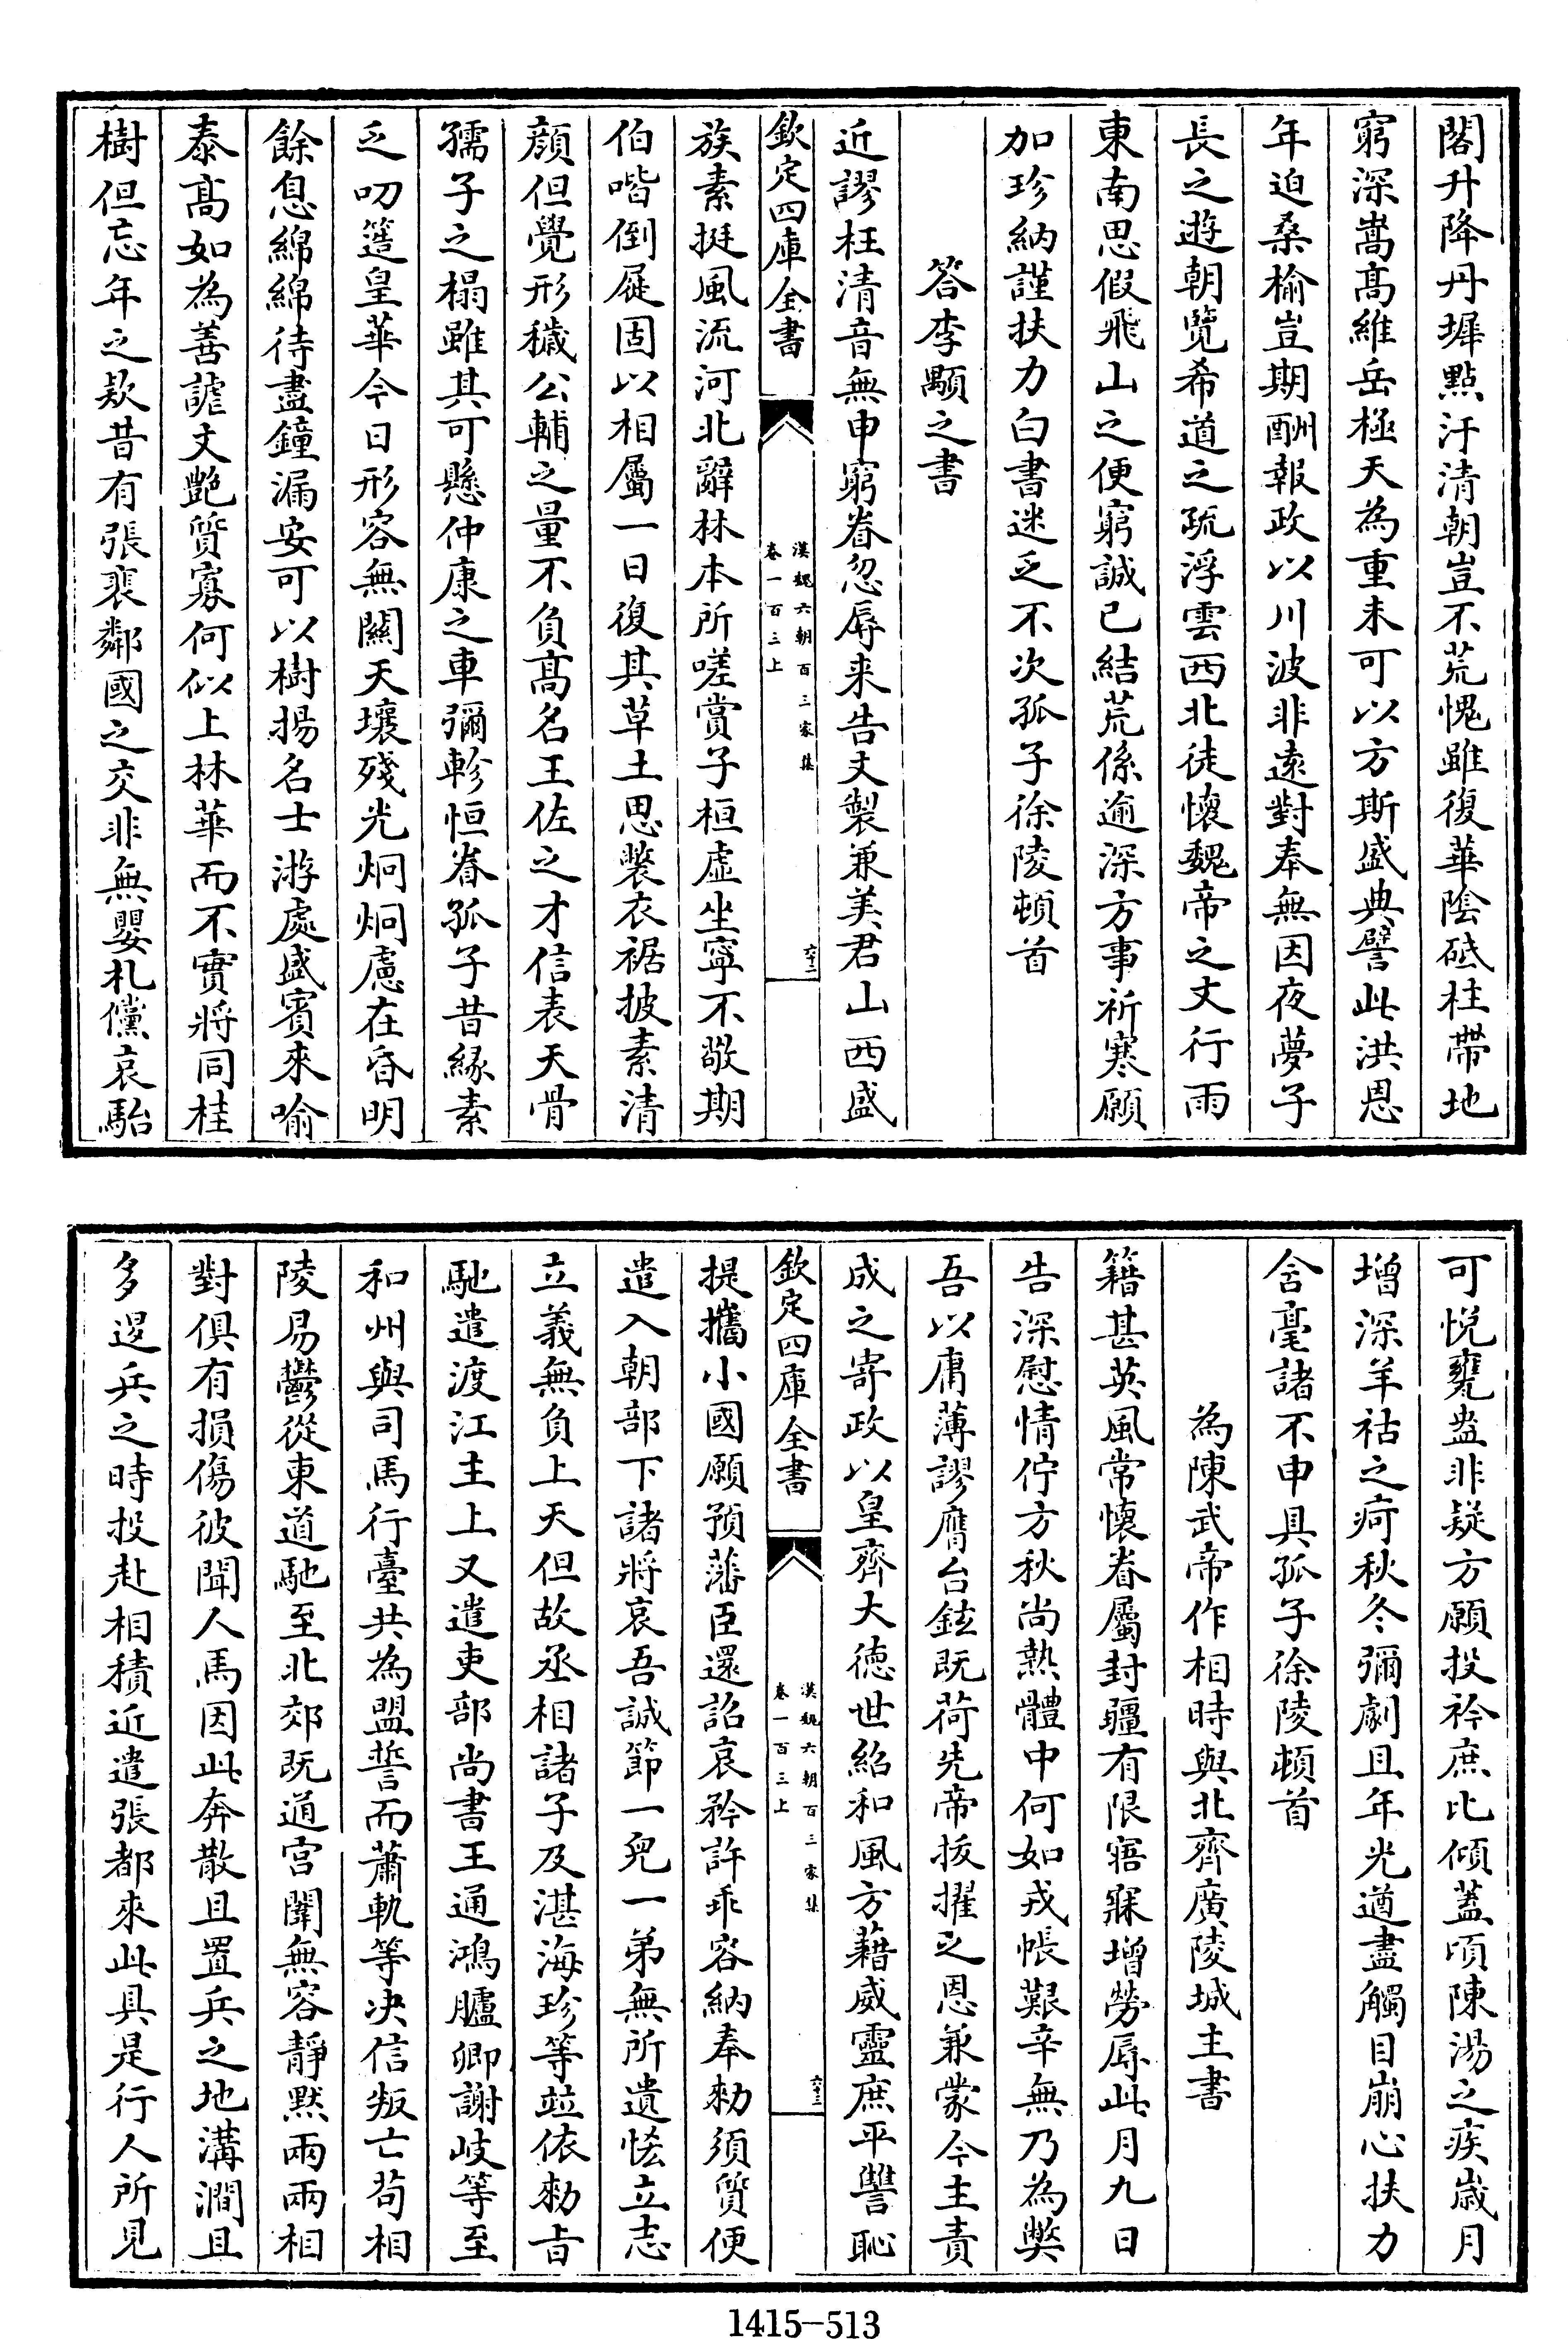 閣升降丹墀點汙清朝豈不荒愧雖復華陰砥柱帶地
窮深嵩髙維岳極天為重未可以方斯盛典譬此洪恩
年迫桑榆豈期酬報政以川波非遠對奉無因夜夢子
長之遊朝覽希道之疏浮雲西北徒懷魏帝之文行雨
東南思假飛山之便窮誠已結荒係逾深方事祈寒願
加珍納謹扶力白書迷乏不次孤子徐陵頓首
答李顒之書
近謬枉清音無申窮眷忽辱来告文製兼美君山西盛
欽定四庫全書
漢魏六朝百三家集
卷一百三上
六十二
族素挺風流河北辭林本所嗟賞子桓虚坐寧不敬期
伯喈倒屣固以相屬一日復其草土思褧衣裾披素清
顔但覺形穢公輔之量不負髙名王佐之才信表天骨
孺子之榻雖其可懸仲康之車彌軫恒眷孤子昔縁素
乏叨簉皇華今日形容無關天壤殘光炯炯慮在昏明
餘息綿綿待盡鐘漏安可以樹揚名士游處盛賓來喻
泰髙如為善謔文艶質寡何似上林華而不實將同桂
樹但忘年之欵昔有張裴鄰國之交非無嬰札儻哀駘
可悦甕盎非疑方願投衿庶比傾蓋項陳湯之疾嵗月
增深羊祜之疴秋冬彌劇且年光遒盡觸目崩心扶力
含毫諸不申具孤子徐陵頓首
為陳武帝作相時與北齊廣陵城主書
籍甚英風常懷眷屬封疆有限寤寐增勞辱此月九日
告深慰情佇方秋尚熱體中何如戎帳艱辛無乃為獘
吾以庸薄謬膺台鉉既荷先帝拔擢之恩兼蒙今主責
成之寄政以皇齊大徳世紹和風方藉威靈庶平讐恥
欽定四庫全書
漢魏六朝百三家集
卷一百三上
六十三
提攜小國願預藩臣還詔哀矜許垂容納奉勑須質便
遣入朝部下諸將哀吾誠節一兒一弟無所遺恡立志
立義無負上天但故丞相諸子及湛海珍等竝依勑旨
馳遣渡江主上又遣吏部尚書王通鴻臚卿謝岐等至
和州與司馬行臺共為盟誓而蕭軌等决信叛亡茍相
陵易鬱從東道馳至北郊既逼宫闈無容靜默兩兩相
對俱有損傷彼聞人馬因此奔散且置兵之地溝澗且
多逞兵之時投赴相積近遣張都來此具是行人所見
1415-513